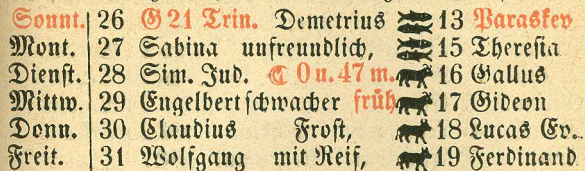 Sonnt. 26 G 21 Trin. Demetrius 13 Paraskev
Mont. 27 Sabina unfreundlich, 15 Theresia
Dienst. 28 Sim. Jud. ☾ 0 u. 47 m. 16 Gallus
Mittw. 29 Engelbert schwacher früh 17 Gideon
Donn. 30 Claudius Frost, 18 Lucas Ev.
Freit. 31 Wolfgang mit Reif, 19 Ferdinand